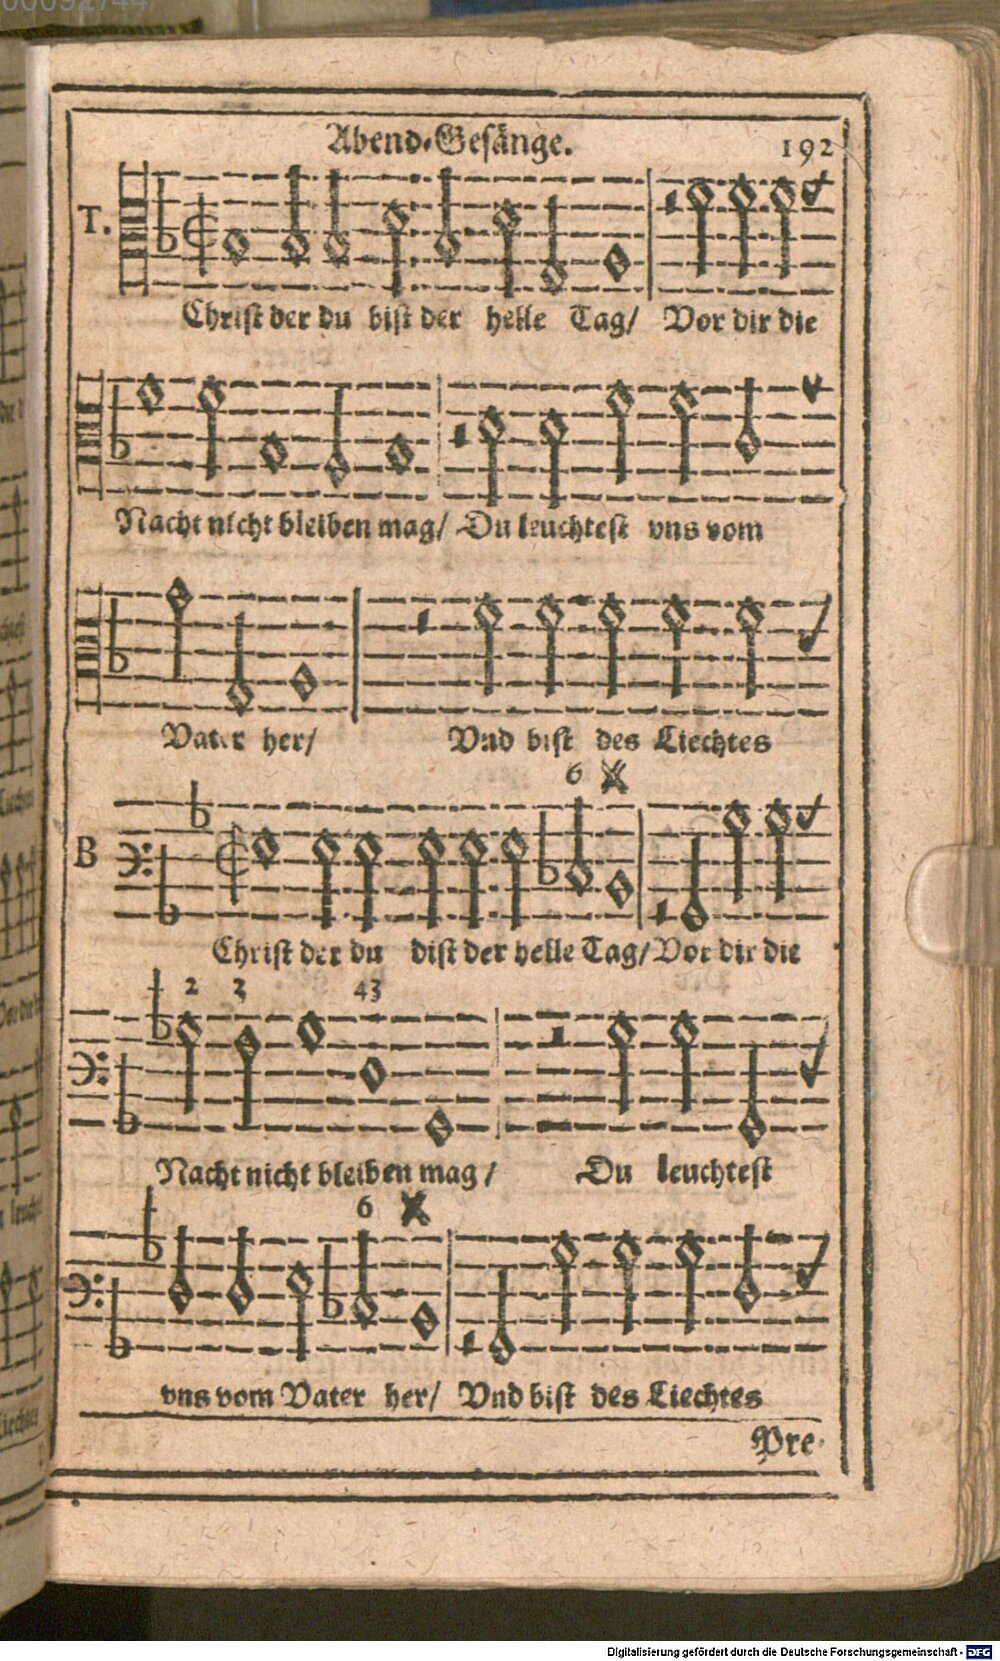 00092744
Abend-Gesänge. 192
T.
Christ der du bist der helle Tag/ Vor dir die
Nacht nicht bleiben mag/ Du leuchtest vns vom
Vater her/ Vnd bist des Liechtes
6
B
Christ der du bist der helle Tag/ Vor dir die
2 2 43
Nacht nicht bleiben mag/ Du leuchtest
6
vns vom Vater her/ Vnd bist des Liechtes
Pre
Digitalisierung gefördert durch die Deutsche Forschungsgemeinschaft - DFG